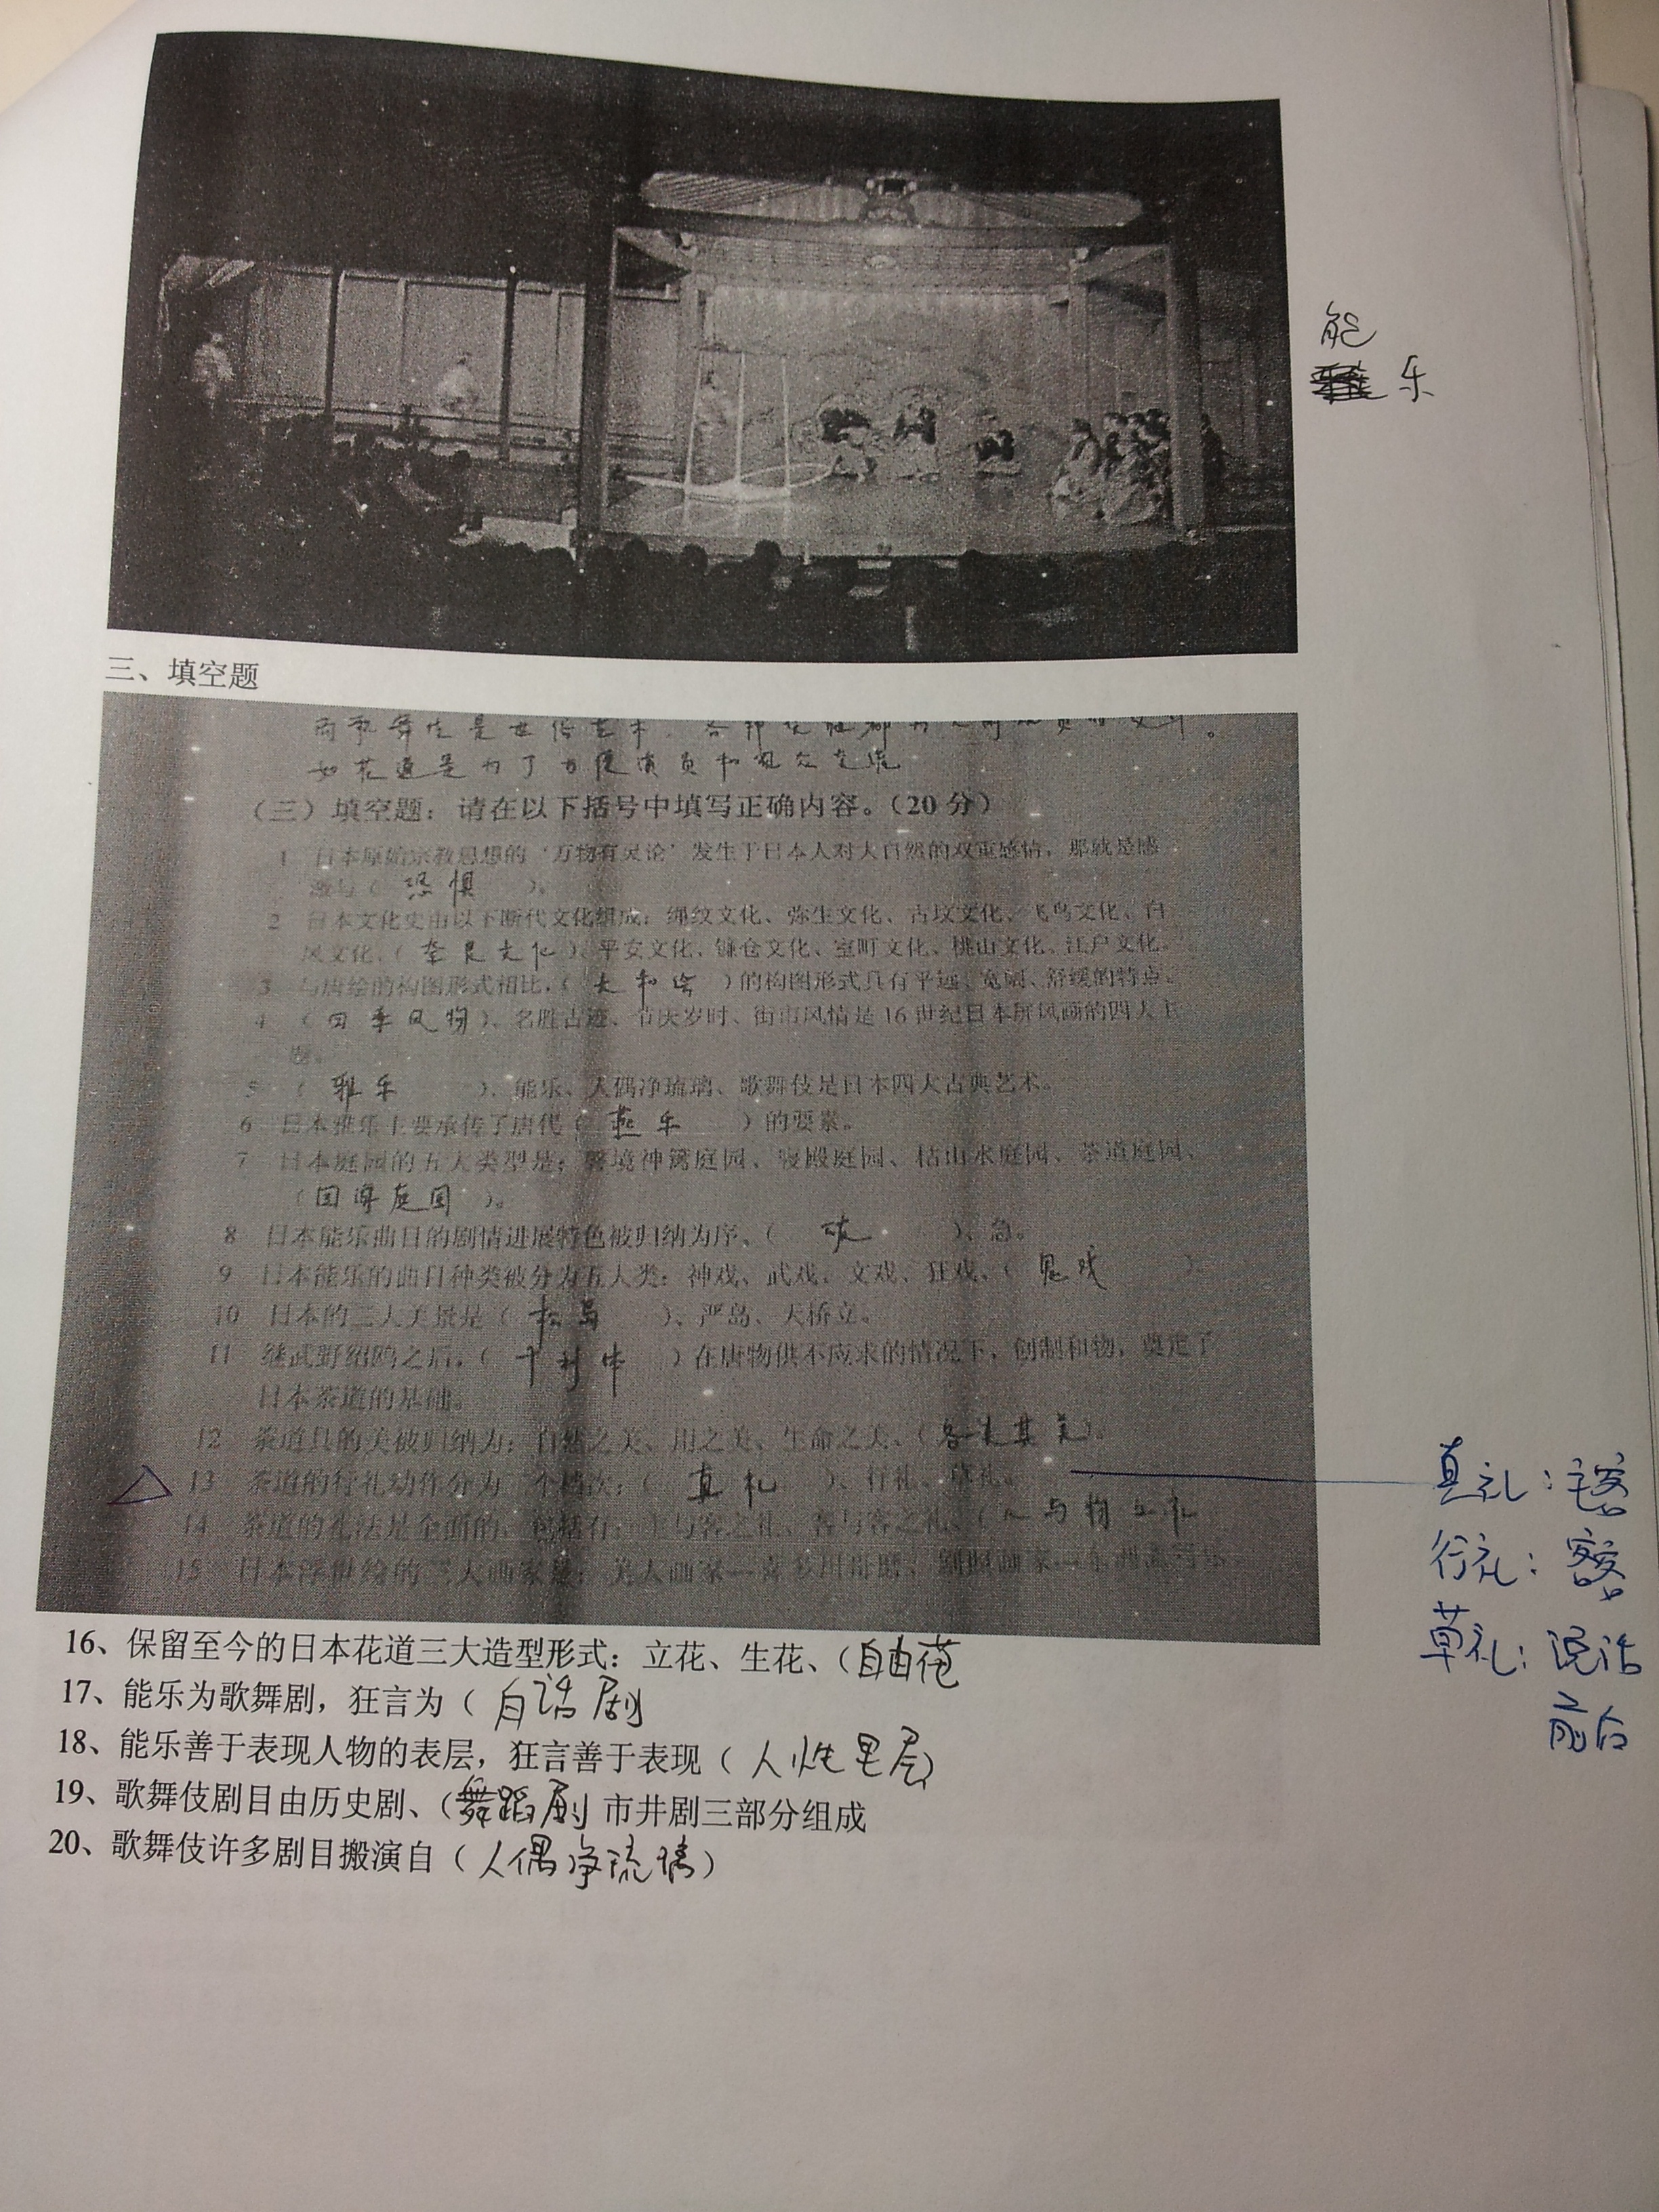 能
乐
三、填空题
如花道是为了方便演员和观众交流
（三）填空题：请在以下括号中填写正确内容。（20分）
1 日本原始宗教思想的‘万物有灵论’发生于日本人对大自然的双重感情，那就是感
激与（恐惧）。
2 日本文化史由以下断代文化组成：绳纹文化、弥生文化、古坟文化、飞鸟文化、白
凤文化、（奈良文化）、平安文化、镰仓文化、室町文化、桃山文化、江户文化。
3 与唐绘的构图形式相比，（大和绘）的构图形式具有平远、宽阔、舒缓的特点。
4 （四季风物）、名胜古迹、节庆岁时、街市风情是16世纪日本屏风画的四大主
题。
5 （雅乐）、能乐、人偶净琉璃、歌舞伎是日本四大古典艺术。
6 日本雅乐主要承传了唐代（燕乐）的要素。
7 日本庭园的五大类型是：磐境神篱庭园、寝殿庭园、枯山水庭园、茶道庭园、
（回游庭园）。
8 日本能乐曲目的剧情进展特色被归纳为序、（破）、急。
9 日本能乐的曲目种类被分为五大类：神戏、武戏、文戏、狂戏、（鬼戏）。
10 日本的三大美景是（松岛）、严岛、天桥立。
11 继武野绍鸥之后，（千利休）在唐物供不应求的情况下，创制和物，奠定了
日本茶道的基础。
12 茶道具的美被归纳为：自然之美、用之美、生命之美、（各美其美）。
13 茶道的行礼动作分为三个档次：（真礼）、行礼、草礼。
真礼：主客
14 茶道的礼法是全面的，包括有：主与客之礼、客与客之礼、（人与物之礼
行礼：客客
15 日本浮世绘的三大画家是：美人画家—喜多川歌麿；
草礼：说话
前后
16、保留至今的日本花道三大造型形式：立花、生花、（自由花
17、能乐为歌舞剧，狂言为（白话剧
18、能乐善于表现人物的表层，狂言善于表现（人性里层）
19、歌舞伎剧目由历史剧、（舞蹈剧 市井剧三部分组成
20、歌舞伎许多剧目搬演自（人偶净琉璃）